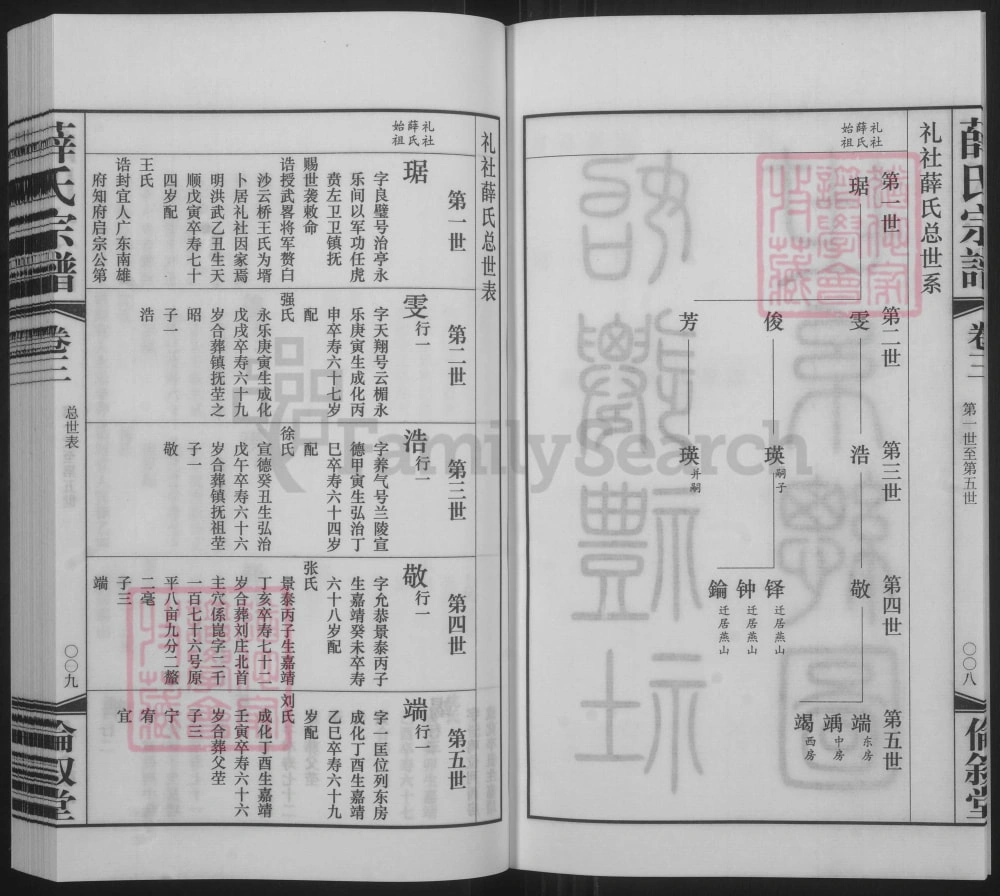 薛氏宗谱
卷三
第一世至第五世
〇〇八
伦叙堂
礼社薛氏总世系
礼社
薛氏
始祖
第一世
琚
第二世
雯
俊
芳
第三世
浩
瑛嗣子
瑛并嗣
第四世
敬
铎迁居燕山
钟迁居燕山
鑰迁居燕山
第五世
端东房
竬中房
竭西房
礼社薛氏总世表
礼社
薛氏
始祖
第一世
琚
字良璧号治亭永
乐间以军功任虎
贲左卫卫镇抚
赐世袭敕命
诰授武畧将军赘白
沙云桥王氏为壻
卜居礼社因家焉
明洪武乙丑生天
顺戊寅卒寿七十
四岁配
王氏
诰封宜人广东南雄
府知府启宗公第
第二世
雯行一
字天翔号云楣永
乐庚寅生成化丙
申卒寿六十七岁
配
强氏
永乐庚寅生成化
戊戌卒寿六十九
岁合葬镇抚茔之
昭
子一
浩
第三世
浩行一
字养气号兰陵宣
德甲寅生弘治丁
巳卒寿六十四岁
配
徐氏
宣德癸丑生弘治
戊午卒寿六十六
岁合葬镇抚祖茔
子一
敬
第四世
敬行一
字允恭景泰丙子
生嘉靖癸未卒寿
六十八岁配
张氏
景泰丙子生嘉靖
丁亥卒寿七十二
岁合葬刘庄北首
主穴係崑字二千
一百七十六号原
平八亩九分二釐
二毫
子三
端
第五世
端行一
字一匡位列东房
成化丁酉生嘉靖
乙巳卒寿六十九
岁配
刘氏
成化丁酉生嘉靖
壬寅卒寿六十六
岁合葬父茔
子三
宁
宥
宜
薛氏宗谱
卷三
总世表
〇〇九
伦叙堂
FamilySearch